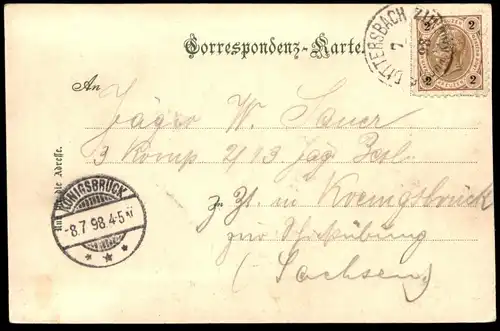 Correspondenz-Karte.
DITTERSBACH
7
98
2 2
2 2
An
Jäger W. Sauer
3 Komp 2/13 Jäg Batl.
z. Zt. in Koenigsbrück
zur Schießübung
(Sachsen)
Nur für die Adresse.
KÖNIGSBRÜCK
-8.7 98.4-5N
* * *